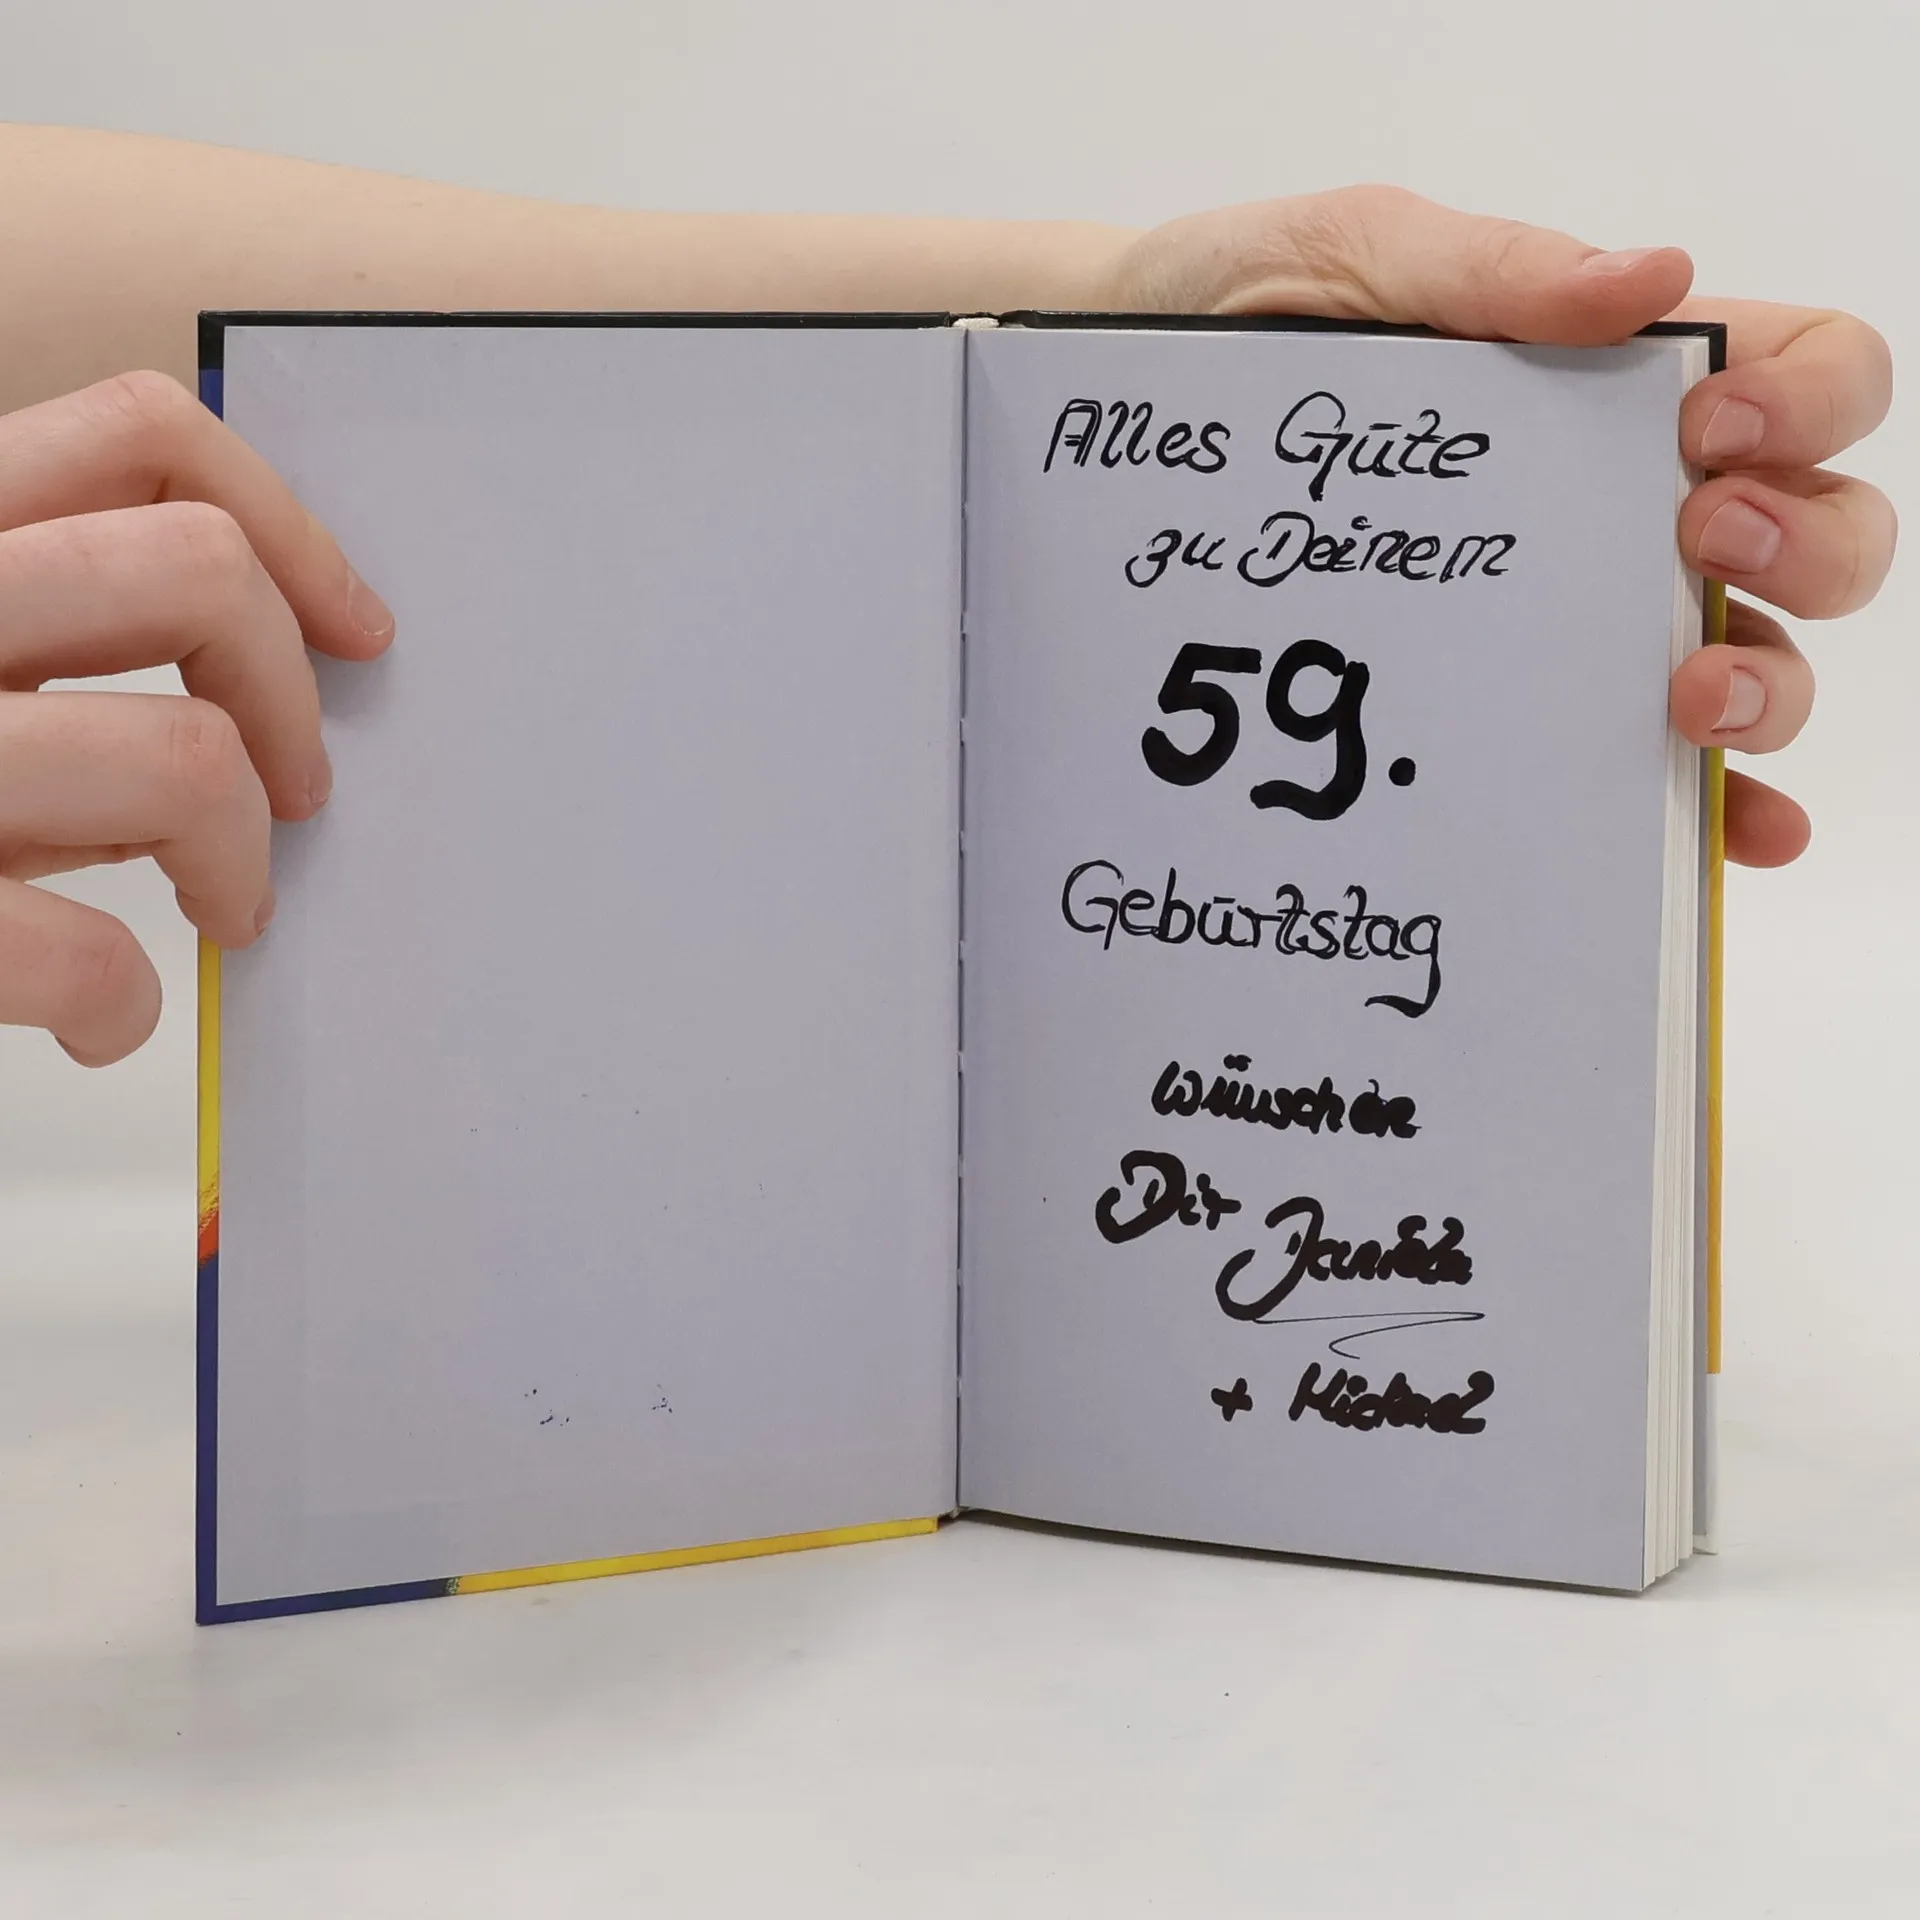 Alles Gute
zu Deinem
59.
Geburtstag
wünschen
Dir
+ Michael